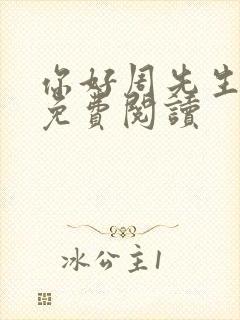 你好周先生
免費閱讀
冰公主1